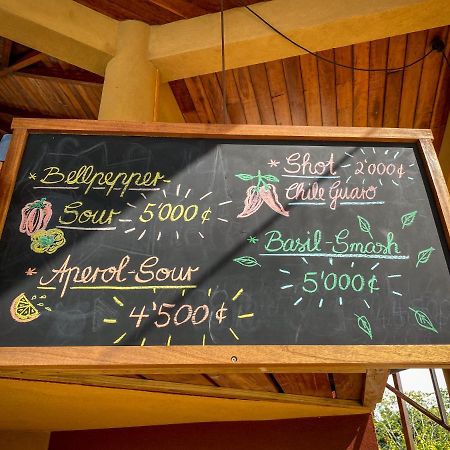 * Bellpepper-
Sour 5'000¢
* Aperol-Sour
4'500¢
* Shot 2'000¢
Chile Guaro
* Basil-Smash
5'000¢